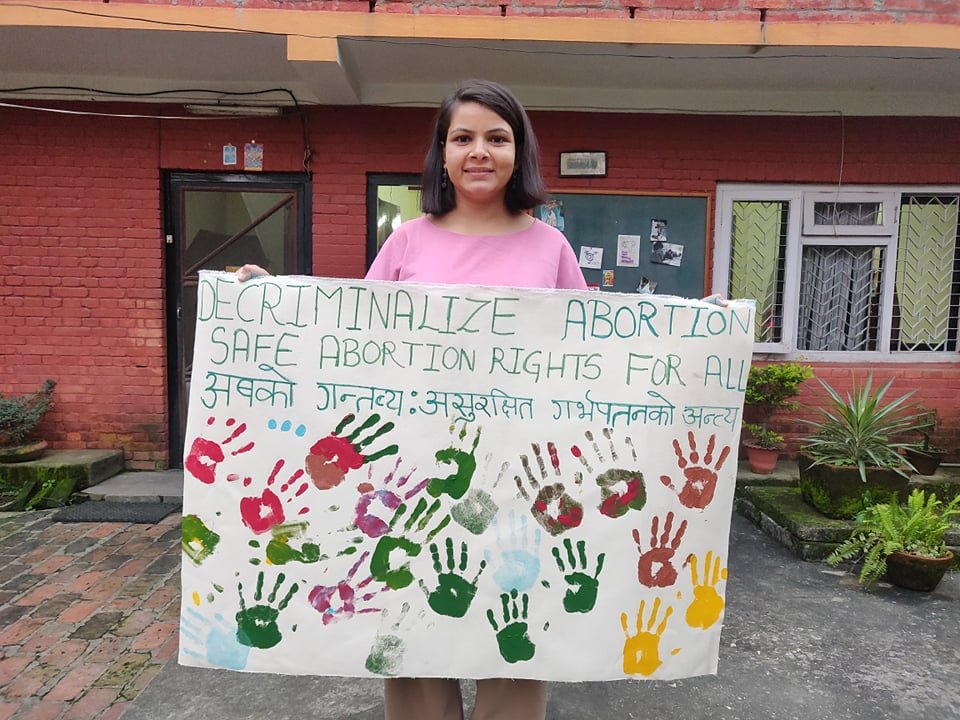 DECRIMINALIZE ABORTION
SAFE ABORTION RIGHTS FOR ALL
अबको गन्तव्य : असुरक्षित गर्भपतनको अन्त्य